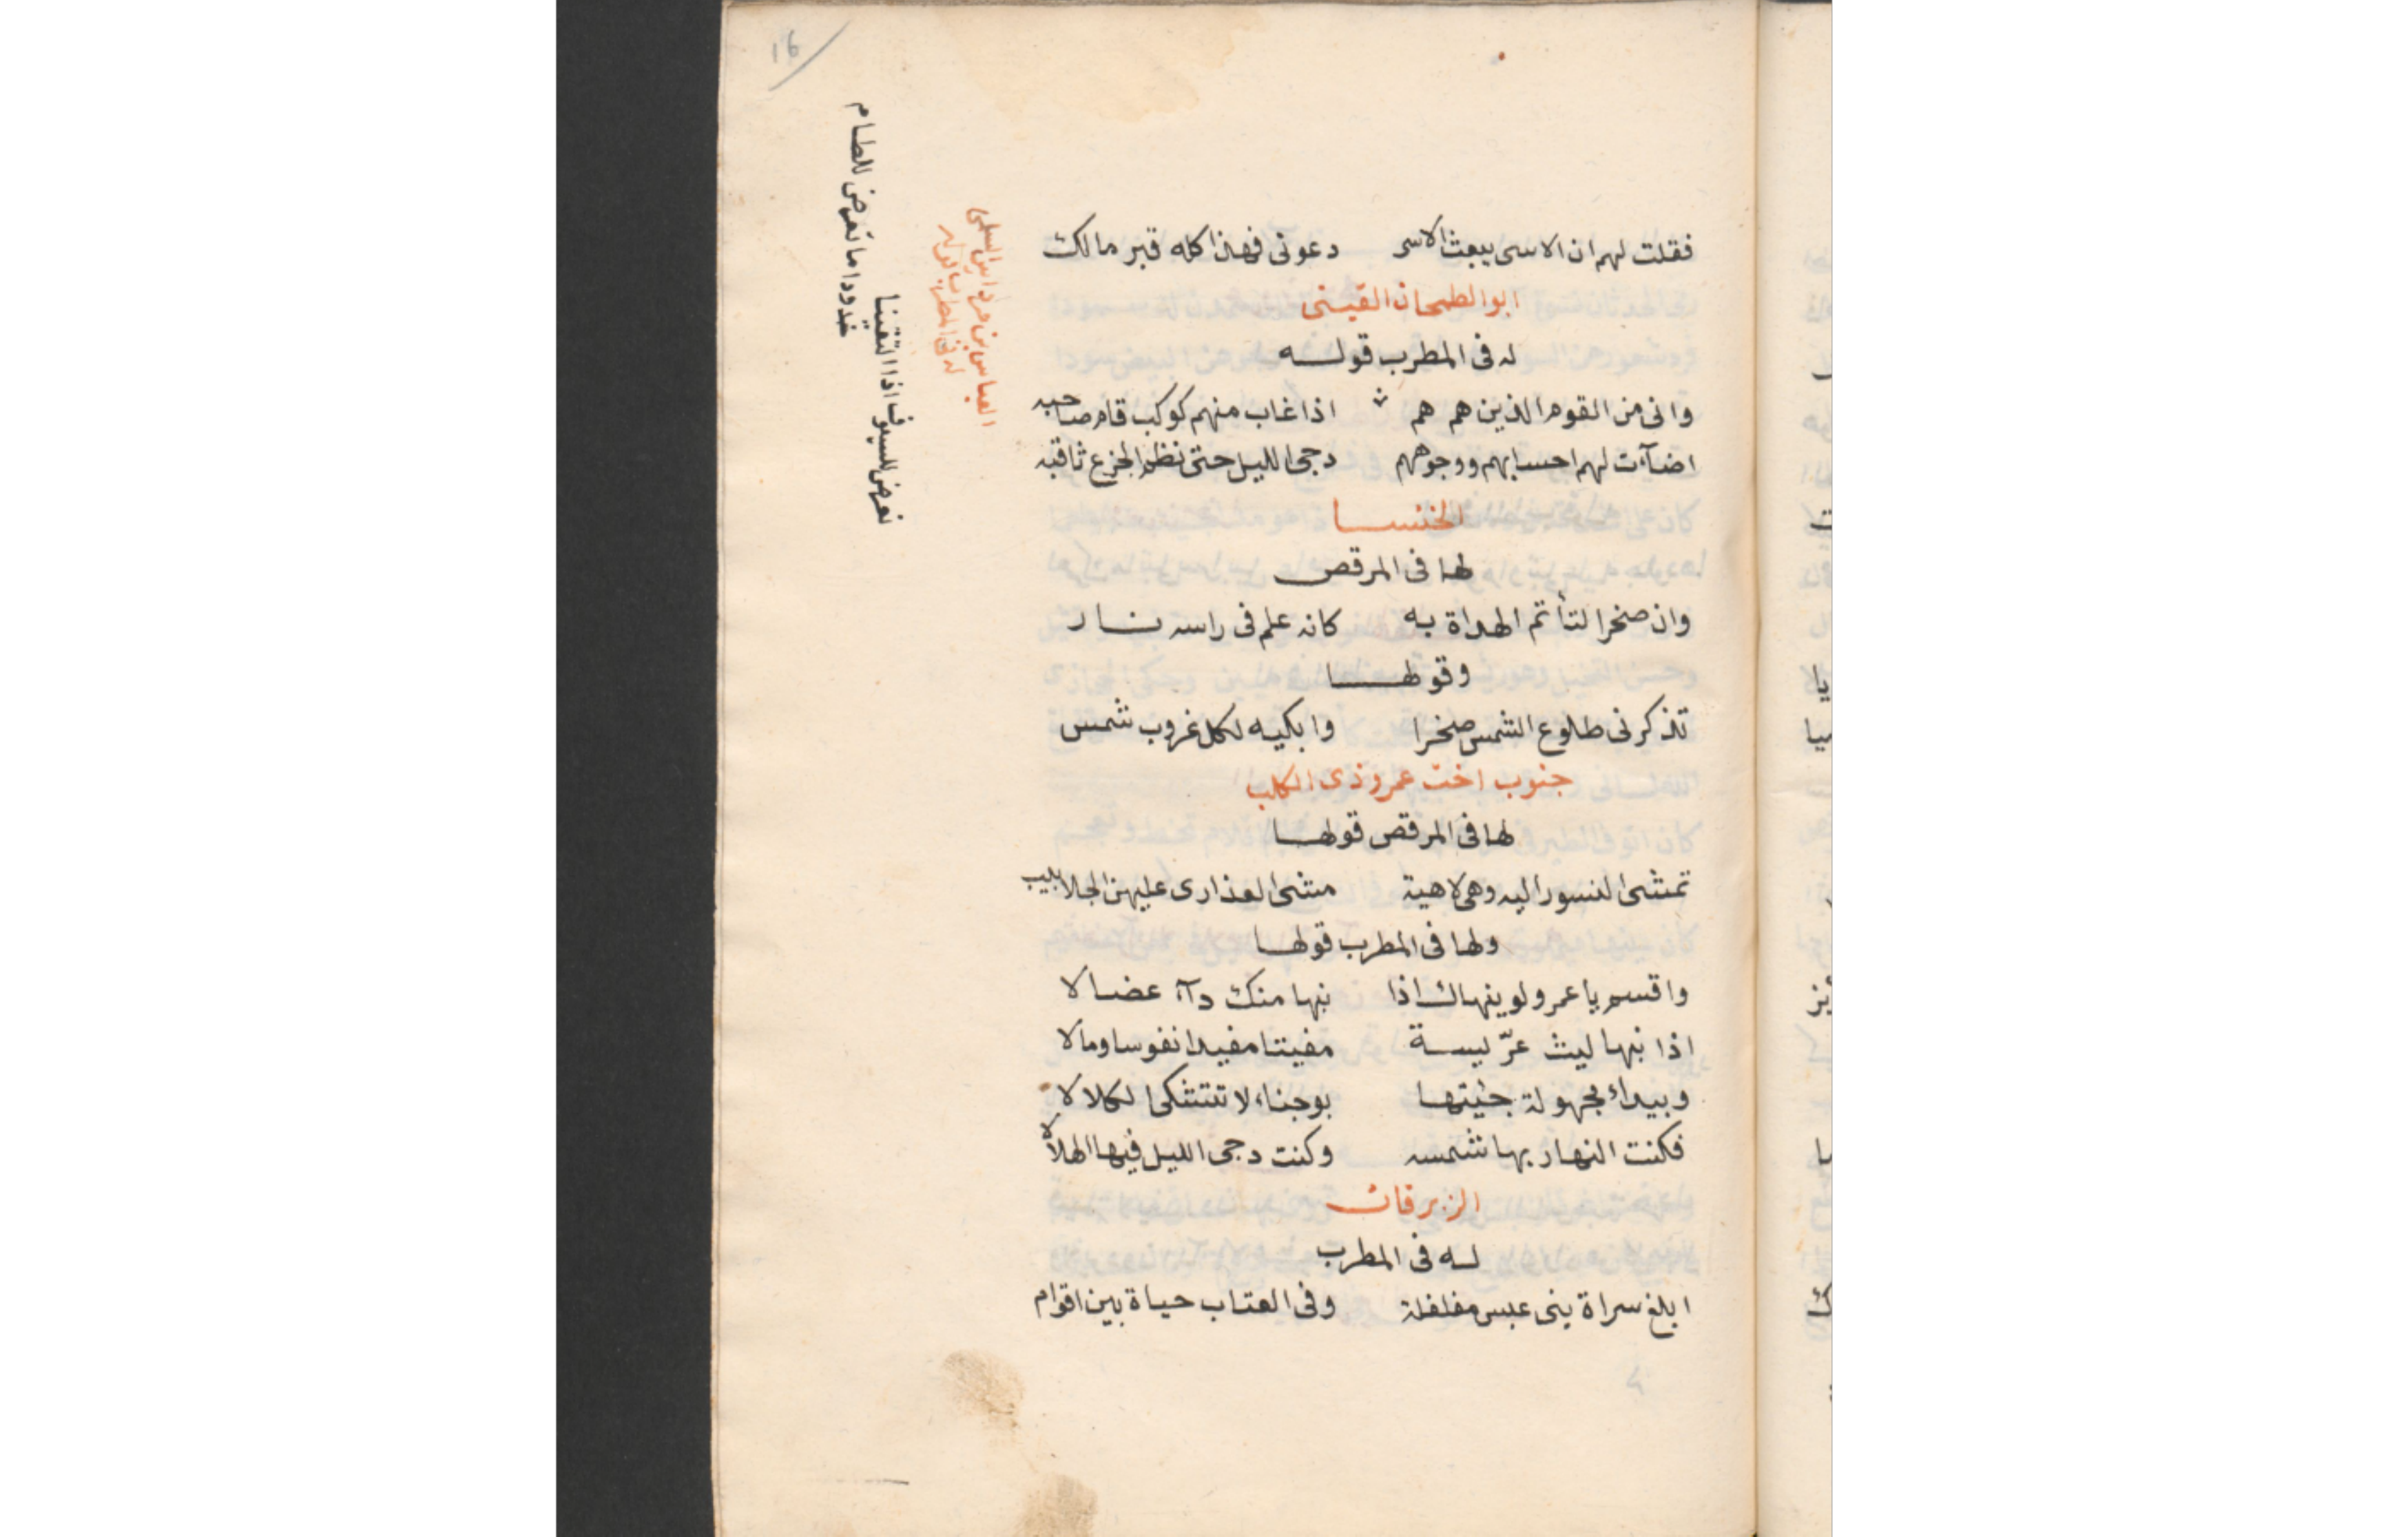 16
فقلت لهم ان الاسى يبعث الاسى دعونى فهذا كله قبر مالك
ابو الطمحان القينى
له فى المطرب قوله
وانى من القوم الذين هم هم اذا غاب منهم كوكب قام صاحبه
اضآءت لهم احسابهم ووجوههم دجى الليل حتى نظم الجزع ثاقبه
الخنسا
لها فى المرقص
وان صخرا لتأتم الهداة به كانه علم فى راسه نار
وقولها
تذكرنى طلوع الشمس صخرا وابكيه لكل غروب شمس
جنوب اخت عمرو ذى الكلب
لها فى المرقص قولها
تمشى النسور اليه وهى لاهية مشى العذارى عليهن الجلابيب
ولها فى المطرب قولها
واقسم يا عمرو لو ينهاك اذا نبها منك دآء عضالا
اذا نبها ليث عرّيسة مفيتا مفيدا نفوسا ومالا
وبيداء مجهولة جئيتها بوجناء لا تتشكى الكلالا
فكنت النهار بها شمسه وكنت دجى الليل فيها الهلالا
الزبرقان
له فى المطرب
ابلغ سراة بنى عبس مغلغلة وفى العتاب حياة بين اقوام
العباس بن مرداس السلمى
له فى المطرب قوله
نعرض للسيوف اذا التقينا
خدودا ما تعرض للطام